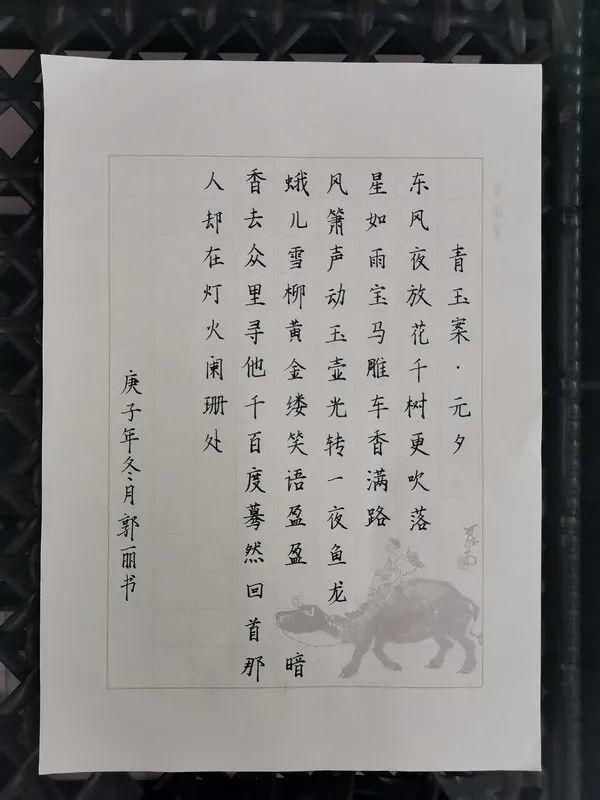 青玉案·元夕
东风夜放花千树更吹落
星如雨宝马雕车香满路
风箫声动玉壶光转一夜鱼龙
蛾儿雪柳黄金缕笑语盈盈 暗
香去众里寻他千百度蓦然回首那
人却在灯火阑珊处
庚子年冬月郭丽书